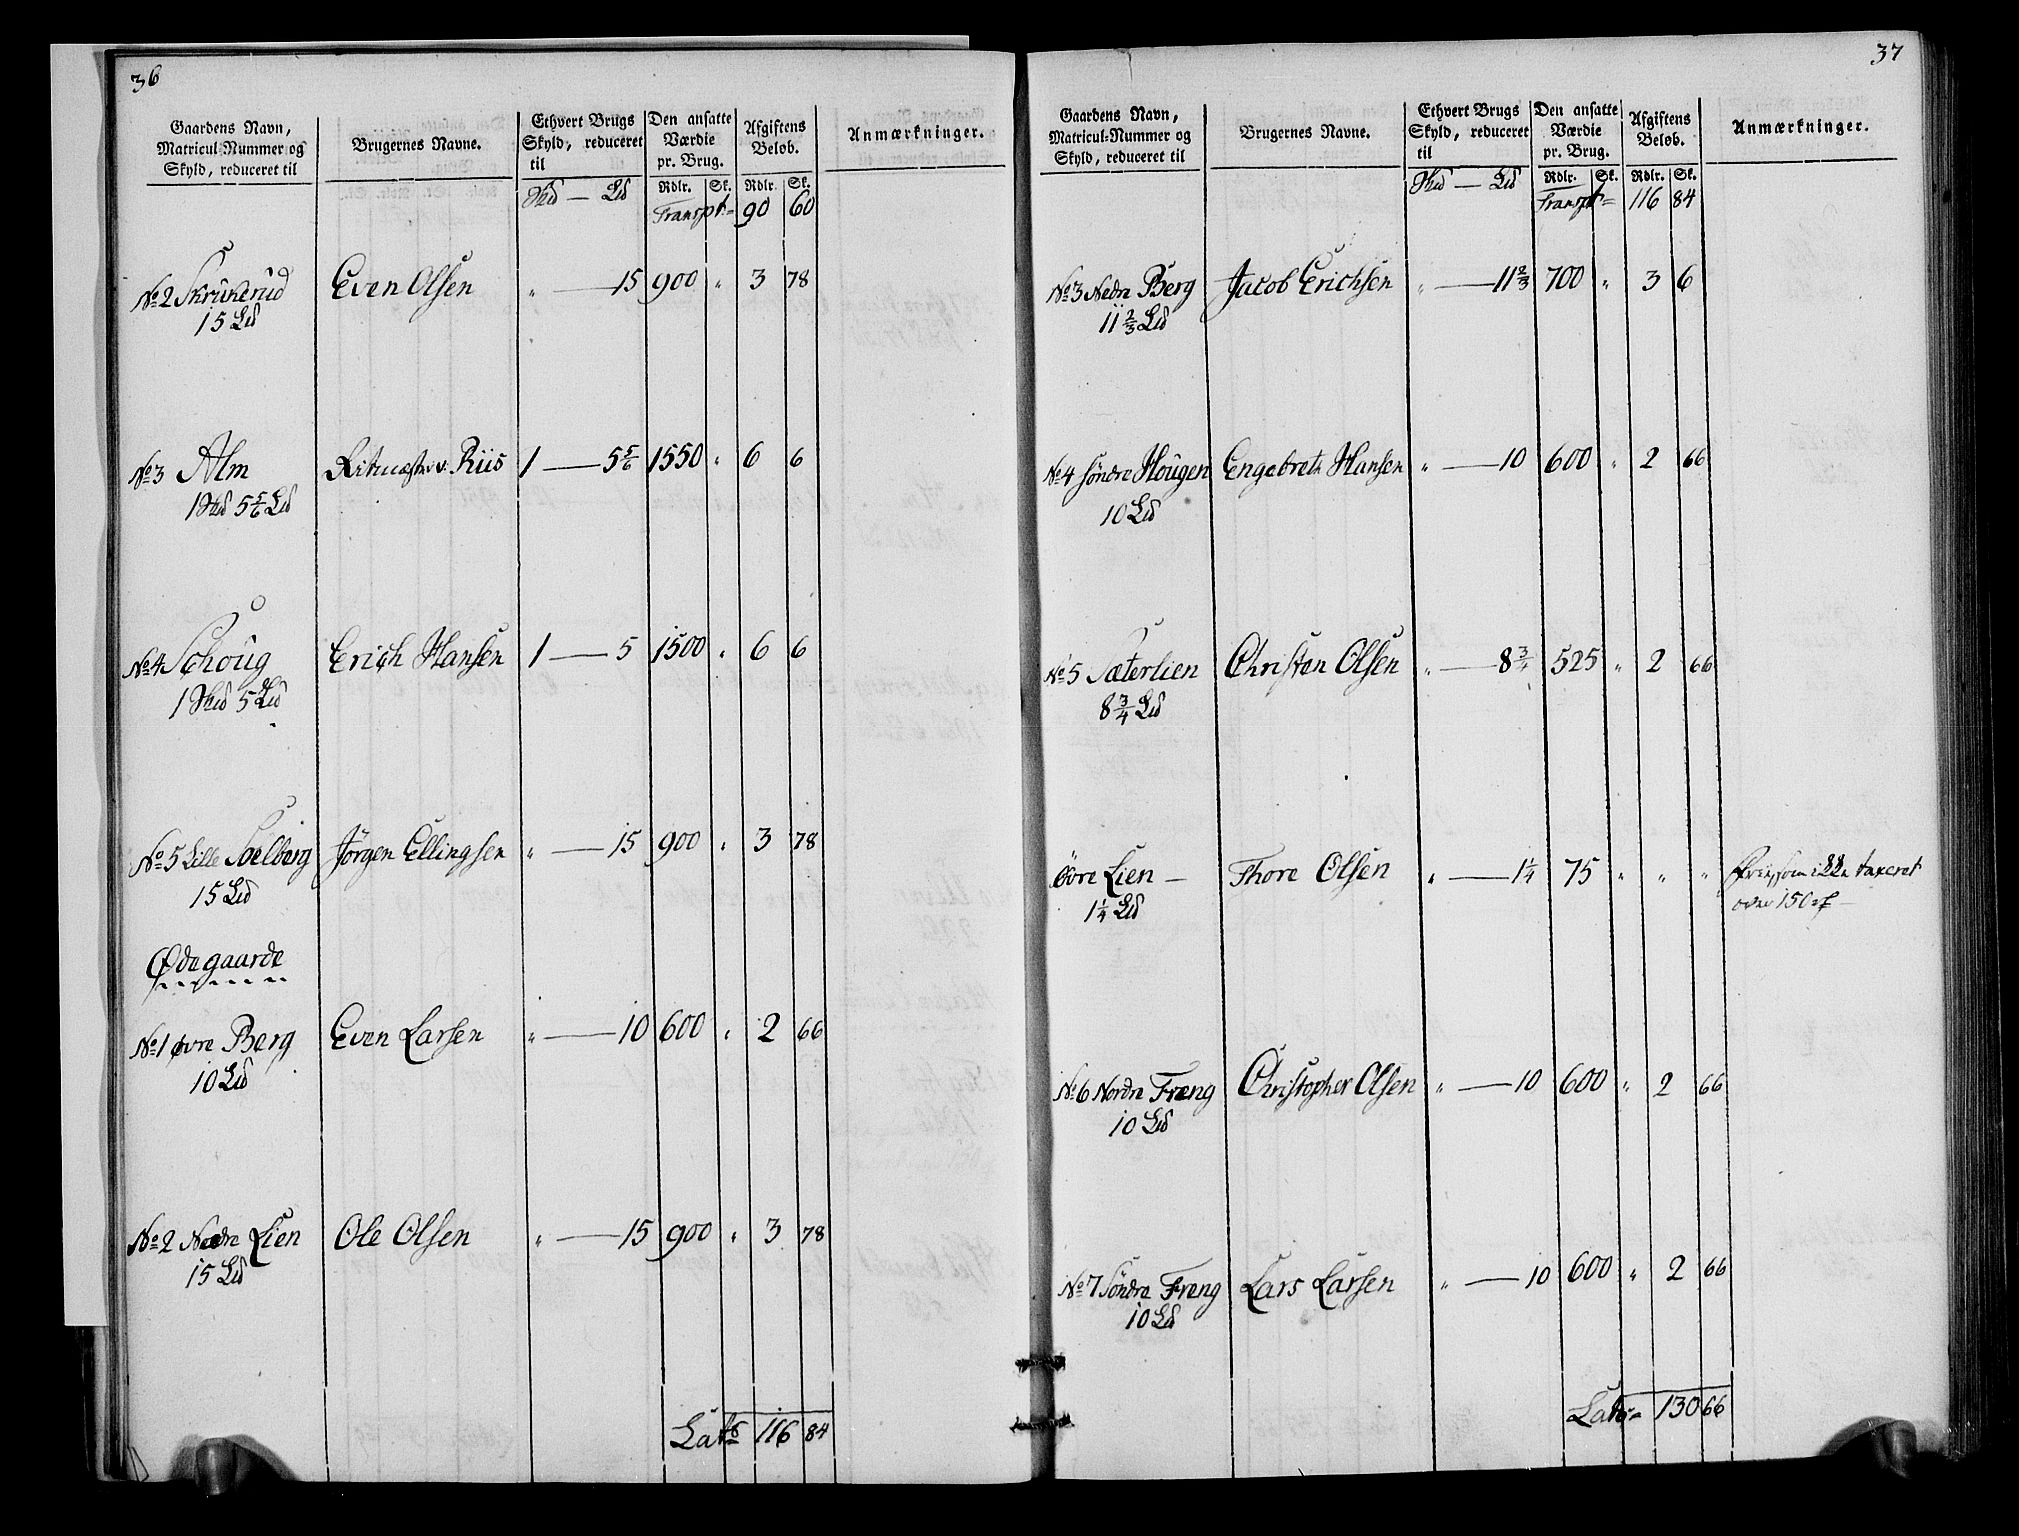 36
Gaardens Navn,
Matricul-Nummer og
Skyld, reduceret til
Brugernes Navne.
Ethvert Brugs
Skyld, reduceret
til
Den ansatte
Værdie
pr. Brug.
Afgiftens
Beløb.
Anmærkninger.
Rdlr. Sk. Rdlr. Sk.
Hud — Ld
Transpt= 90 60
No 2 Skrukerud Even Olsen " — 15 900 " 3 78
15 Ld
No 3 Alm Ritmester v. Riis 1 — 5 5/6 1550 " 6 6
1 Hud 5 5/6 Ld
No 4 Schoug Erich Hansen 1 — 5 1500 " 6 6
1 Hud 5 Ld
No 5 Lille Soelberg Jörgen Ellingsen " — 15 900 " 3 78
15 Ld
Ødegaarde
No 1 øvre Berg Even Larsen " — 10 600 " 2 66
10 Ld
No 2 Nedre Lien Ole Olsen " — 15 900 " 3 78
15 Ld
Lats 116 84
37
Gaardens Navn,
Matricul-Nummer og
Skyld, reduceret til
Brugernes Navne.
Ethvert Brugs
Skyld, reduceret
til
Den ansatte
Værdie
pr. Brug.
Afgiftens
Beløb.
Anmærkninger.
Rdlr. Sk. Rdlr. Sk.
Hud — Ld
Transpt= 116 84
No 3 Nedre Berg Jacob Erichsen " — 11 2/3 700 " 3 6
11 2/3 Ld
No 4 Söndre Hougen Engebreth Hansen " — 10 600 " 2 66
10 Ld
No 5 Sæterlien Christen Olsen " — 8 3/4 525 " 2 66
8 3/4 Ld
Övre Lien — Thore Olsen " — 1 1/4 75 " " " Frie, som ikke taxeret
1 1/4 Ld over 150 rd —
No 6 Nordre Freng Christopher Olsen " — 10 600 " 2 66
10 Ld
No 7 Söndre Freng Lars Larsen " — 10 600 " 2 66
10 Ld
Lats= 130 66